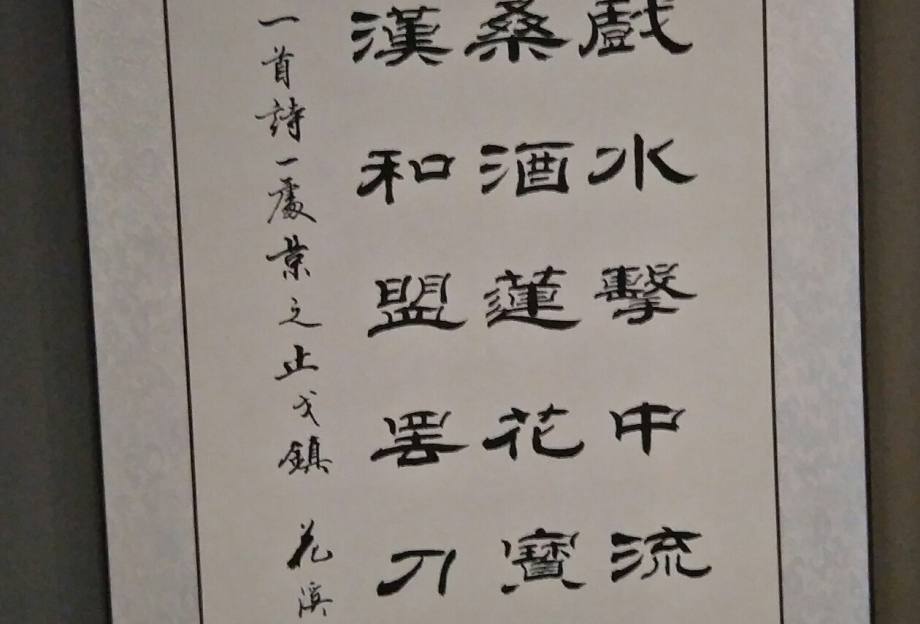 戲水擊中流
桑酒蓮花寶
漢和盟罷刀
一首詩一處景之止戈鎮 花溪